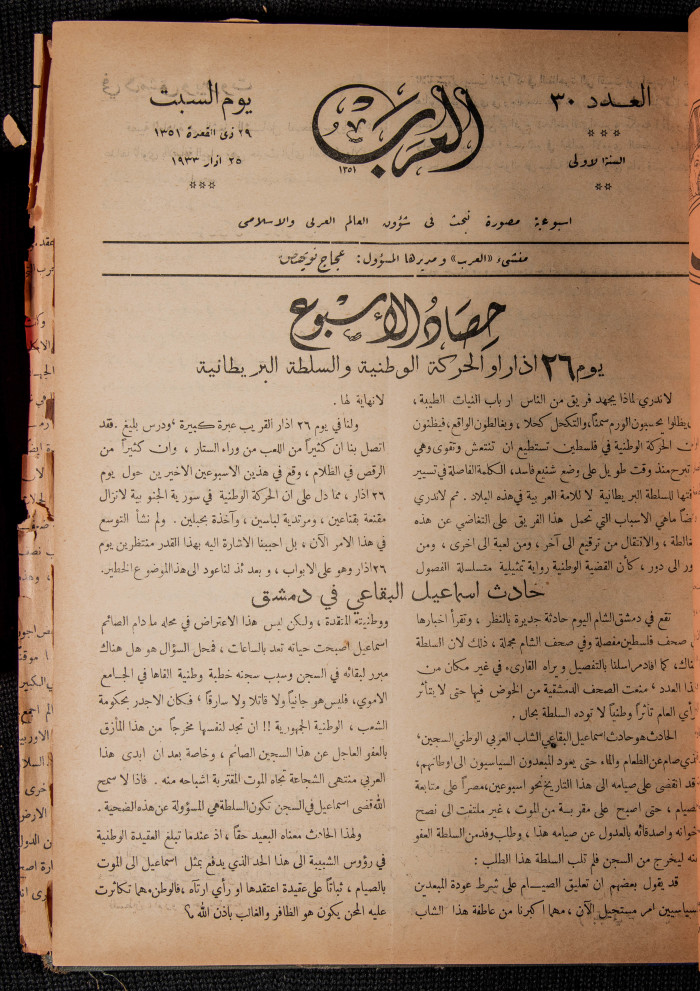 العدد ٣٠
السنة الاولى
العرب
١٣٥١
يوم السبت
٢٩ ذي القعدة ١٣٥١
٢٥ اذار ١٩٣٣
اسبوعية مصورة تبحث في شؤون العالم العربي والاسلامي
منشىء «العرب» ومديرها المسؤول: عجاج نويهض
حصاد الأسبوع
يوم ٢٦ اذار او الحركة الوطنية والسلطة البريطانية
لاندري لماذا يجهد فريق من الناس ارباب النيات الطيبة،
يظلوا يحسبون الورم سمنًا، والتكحل كحلا، ويغالطون الواقع، فيظنون
الحركة الوطنية في فلسطين تستطيع ان تنتعش وتقوى وهي
تمرح منذ وقت طويل على وضع شنيع فاسد، الكلمة الفاصلة في تسيير
للسلطة البريطانية لا للامة العربية في هذه البلاد. ثم لاندري
ماهي الاسباب التي تحمل هذا الفريق على التغاضي عن هذه
، والانتقال من ترقيع الى آخر، ومن لعبة الى اخرى، ومن
ور الى دور، كأن القضية الوطنية رواية تمثيلية متسلسلة الفصول
لانهاية لها.
ولنا في يوم ٢٦ اذار القريب عبرة كبيرة، ودرس بليغ. فقد
اتصل بنا ان كثيرًا من اللعب من وراء الستار، وان كثيرًا من
الرقص في الظلام، وقع في هذين الاسبوعين الاخيرين حول يوم
٢٦ اذار، مما دل على ان الحركة الوطنية في سورية الجنوبية لاتزال
مقنعة بقناعين، ومرتدية لباسين، وآخذة بحبلين. ولم نشأ التوسع
في هذا الامر الآن، بل احببنا الاشارة اليه بهذا القدر منتظرين يوم
٢٦ اذار وهو على الابواب، وبعدئذ لناعود الى هذا الموضوع الخطير.
حادث اسماعيل البقاعي في دمشق
تقع في دمشق الشام اليوم حادثة جديرة بالنظر، وتقرأ اخبارها
صحف فلسطين مفصلة وفي صحف الشام مجملة، ذلك لان السلطة
هناك، كما افادمراسلنا بالتفصيل ويراه القارىء في غير مكان من
هذا العدد، منعت الصحف الدمشقية من الخوض فيها حتى لا يتأثر
رأي العام تأثرًا وطنيًا لا توده السلطة بحال.
الحادث هو حادث اسماعيل البقاعي الشاب العربي الوطني السجين،
الذي صام عن الطعام والماء حتى يعود المبعدون السياسيون الى اوطانهم،
قد انقضى على صيامه الى هذا التاريخ نحو اسبوعين، مصرًا على متابعة
الصيام، حتى اصبح على مقربة من الموت، غير ملتفت الى نصح
خوانه واصدقائه بالعدول عن صيامه هذا، وطلب وفد من السلطة العفو
عنه ليخرج من السجن فلم تلب السلطة هذا الطلب:
قد يقول بعضهم ان تعليق الصيام على شرط عودة المبعدين
السياسيين امر مستحيل الآن، مهما اكبرنا من عاطفة هذا الشاب
ووطنيته المتقدة، ولكن ليس هذا الاعتراض في محله مادام الصائم
اسماعيل اصبحت حياته تعد بالساعات، فمحل السؤال هو هل هناك
مبرر لبقائه في السجن وسبب سجنه خطبة وطنية القاها في الجامع
الاموي، فليس هو جانيًا ولا قاتلا ولا سارقًا، فكان الاجدر بحكومة
الشعب، الوطنية الجمهورية !! ان تجد لنفسها مخرجًا من هذا المأزق
بالعفو العاجل عن هذا السجين الصائم، وخاصة بعد ان ابدى هذا
العربي منتهى الشجاعة تجاه الموت المقتربة اشباحه منه. فاذا لا سمح
الله قضى اسماعيل في السجن تكون السلطة هي المسؤولة عن هذه الضحية.
ولهذا الحادث معناه البعيد حقًا، اذ عندما تبلغ العقيدة الوطنية
في رؤوس الشبيبة الى هذا الحد الذي يدفع بمثل اسماعيل الى الموت
بالصيام، ثباتًا على عقيدة اعتقدها او رأي ارتآه، فالوطن مهما تكاثرت
عليه المحن يكون هو الظافر والغالب باذن الله ؟